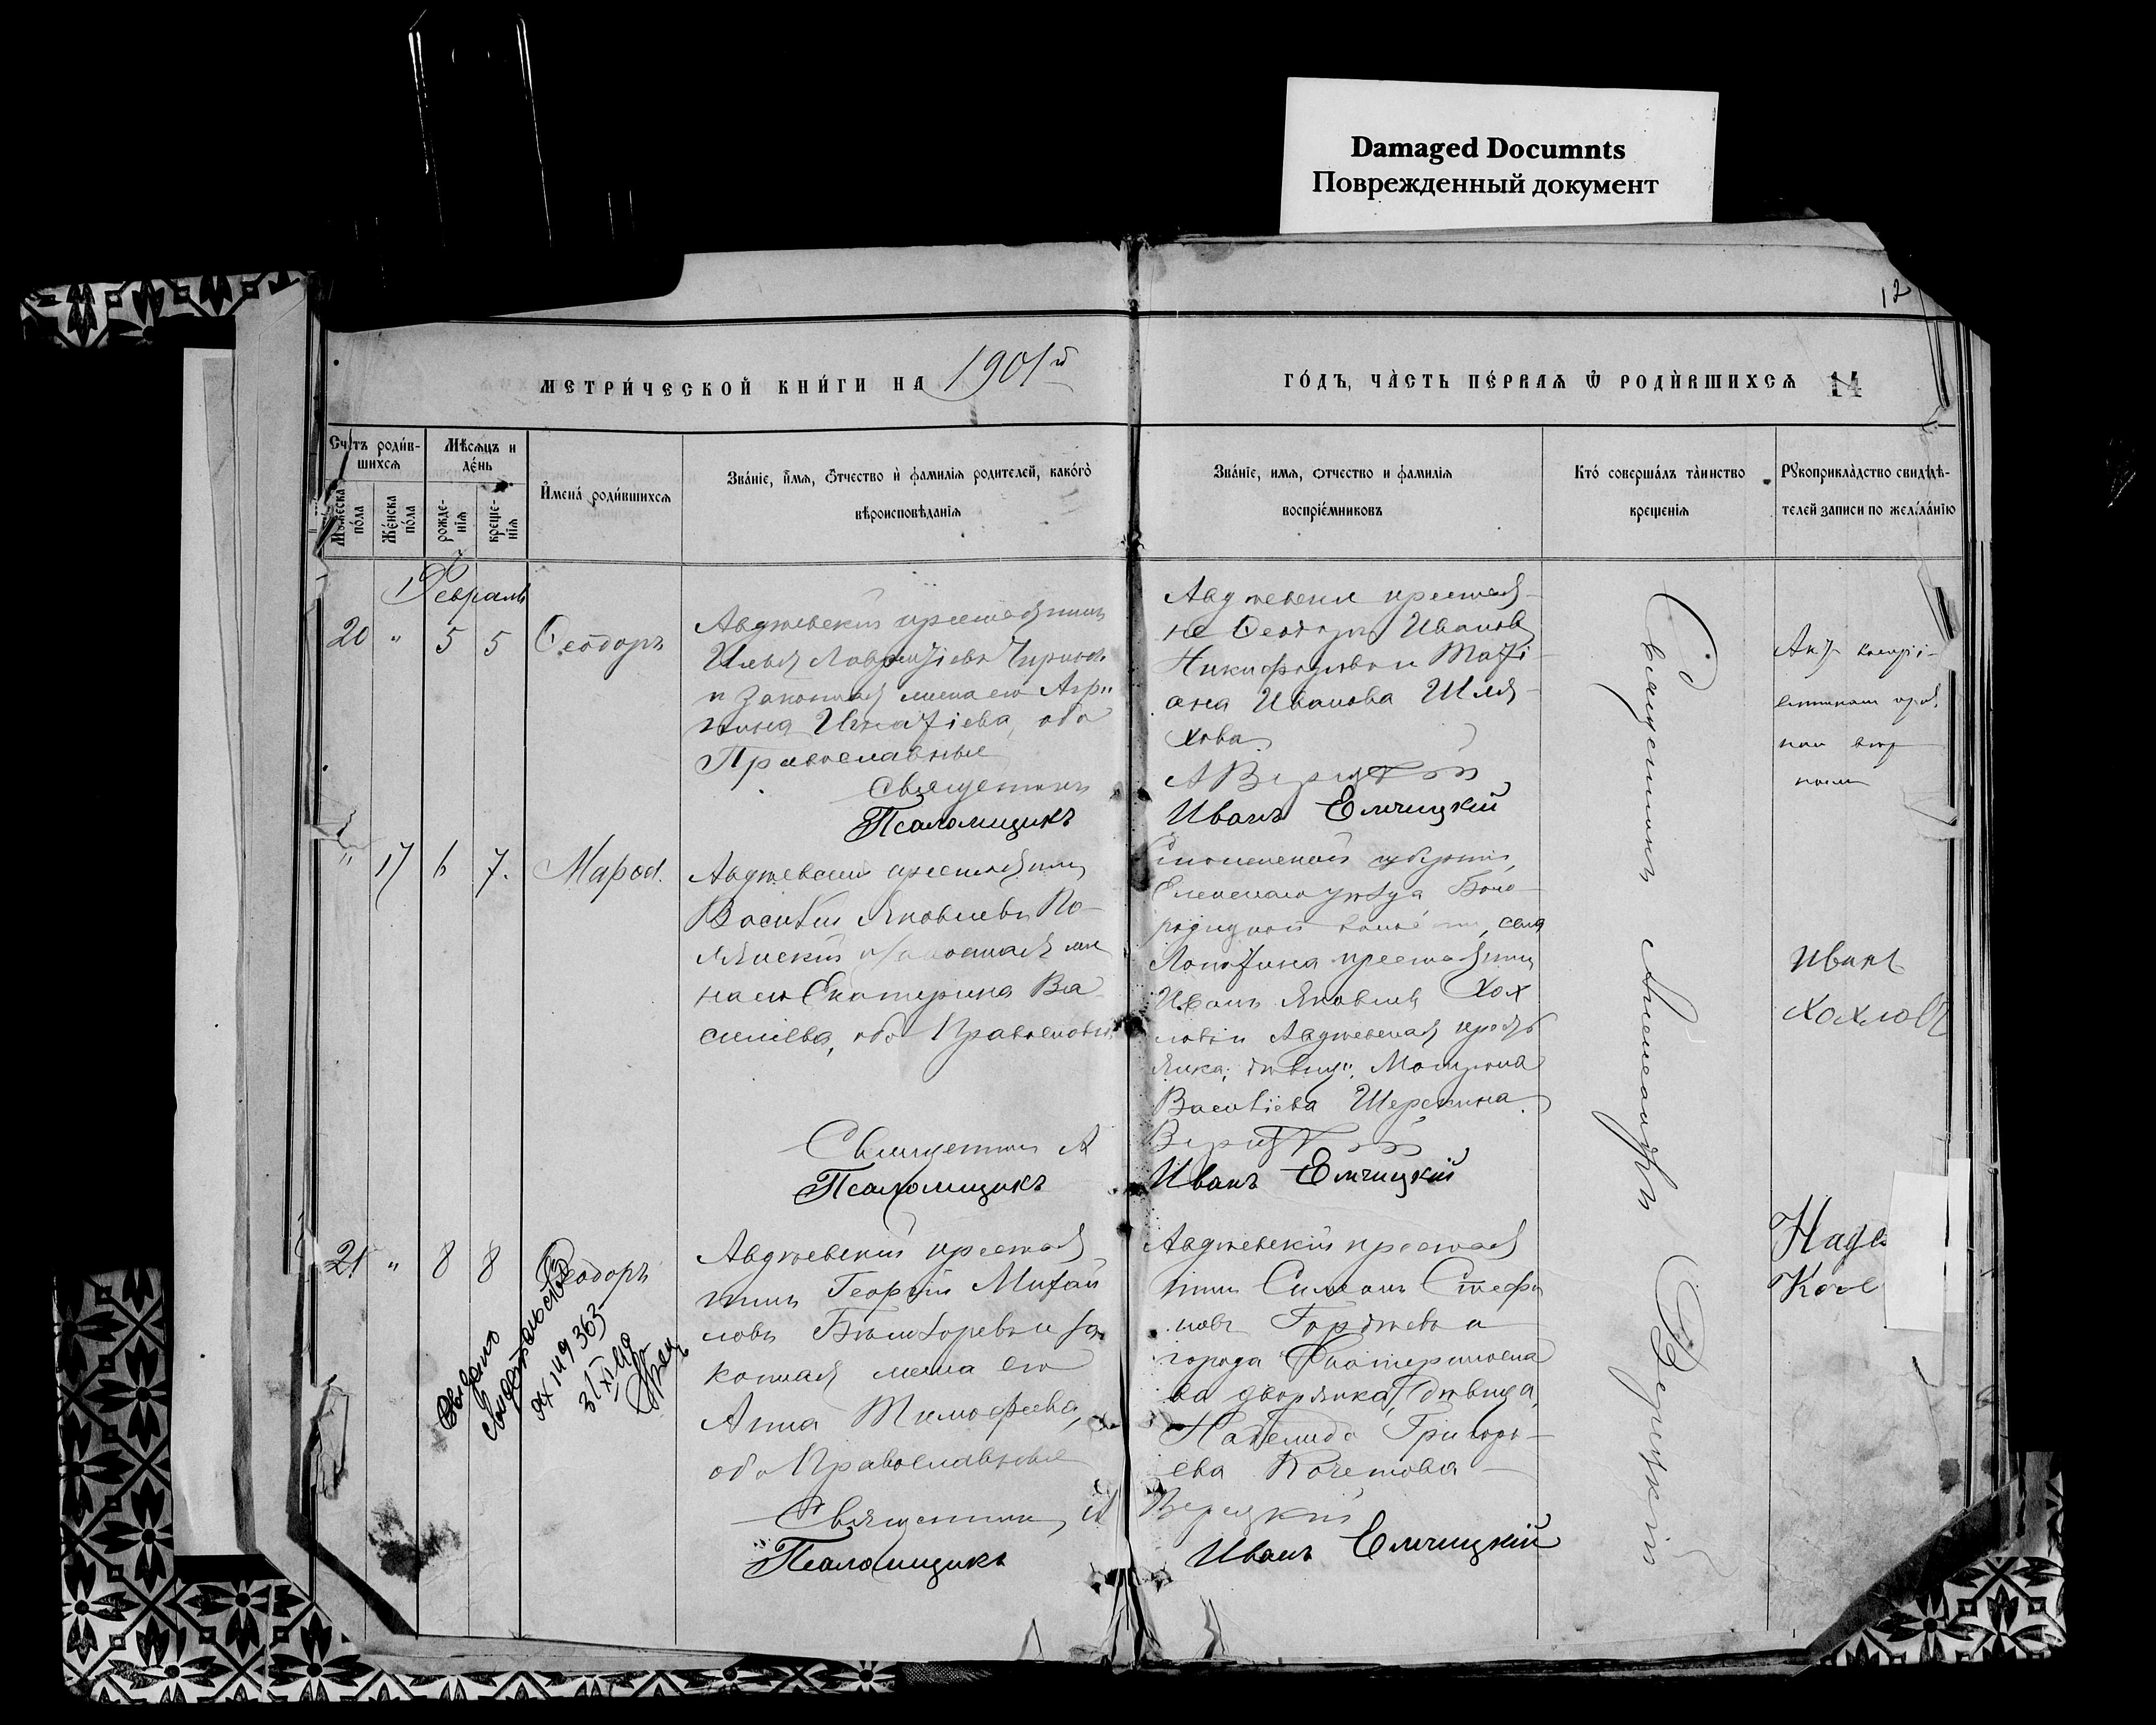 Damaged Documnts
Поврежденный документ
12
МЕТРИ́ЧЕСКОЙ КНИ́ГИ НА 1901й
ГО́ДЪ, ЧА̀СТЬ ПЕ́РВАЯ Ѿ РОДЍВШИХСЯ 14
Сче́тъ роди́в-
шихся
Мѣ́сяцъ и
де́нь
Му́жеска
по́ла
Же́нска
по́ла
рожде-
нія
креще-
нія
И҆мена́ роди́вшихся
Зва́ніе, и҆́мя, ѻ҆́тчество и҆ фамилія родителей, како́гѡ
вѣроисповѣ́данія
Зва́ніе, имя, отчество и фамилія
воспріе́мниковъ
Кто́ соверша́лъ та̀инство
креще́нія
Рꙋкоприкла̀дство свидѣ́-
телей записи по жела́нію
Февраль
20 " 5 5 Ѳеодоръ
Авдѣевскій крестьянинъ
Илья
и законная жена его Агрип
пина Игнатіева, оба
Православные
Священникъ
Псаломщикъ
Авдѣевскіе крестьяне
не Ѳеодоръ Ивановъ
Никифоровъ и Таті-
ана Иванова Шля-
хова
А Верицкій
Иванъ Емчицкій
" 17 6 7.
Авдѣевскій крестьянинъ
Василій Яковлевъ По-
и законная же
на его Екатерина Ва-
сильева, оба Православные
Священникъ А
Псаломщикъ
Смоленской губерніи,
Ельнскаго уѣзда Бого-
родицкой волости, села
крестьянинъ
Иванъ Яковлевъ Хох
ловъ и Авдѣевская кресть
янка, дѣвица, Матрона
Василіева
Верицкій
Иванъ Емчицкій
Иванъ
Хохловъ
21 " 8 8 Ѳеодоръ
Авдѣевскій крестья
нинъ Георгій Михай
ловъ и за
конная жена его
Анна Тимофеева,
оба Православные
Священникъ А
Псаломщикъ
Авдѣевскій крестья
нинъ Симеонъ Стефа
новъ Гордѣевъ и
города Екатериносла
ва дворянка, дѣвица,
Надежда Григорь-
ева Кочетова
Верицкій
Иванъ Емчицкій
Наде
Коче
Выдано
свидетельство
363
Священникъ Александръ Верицкій